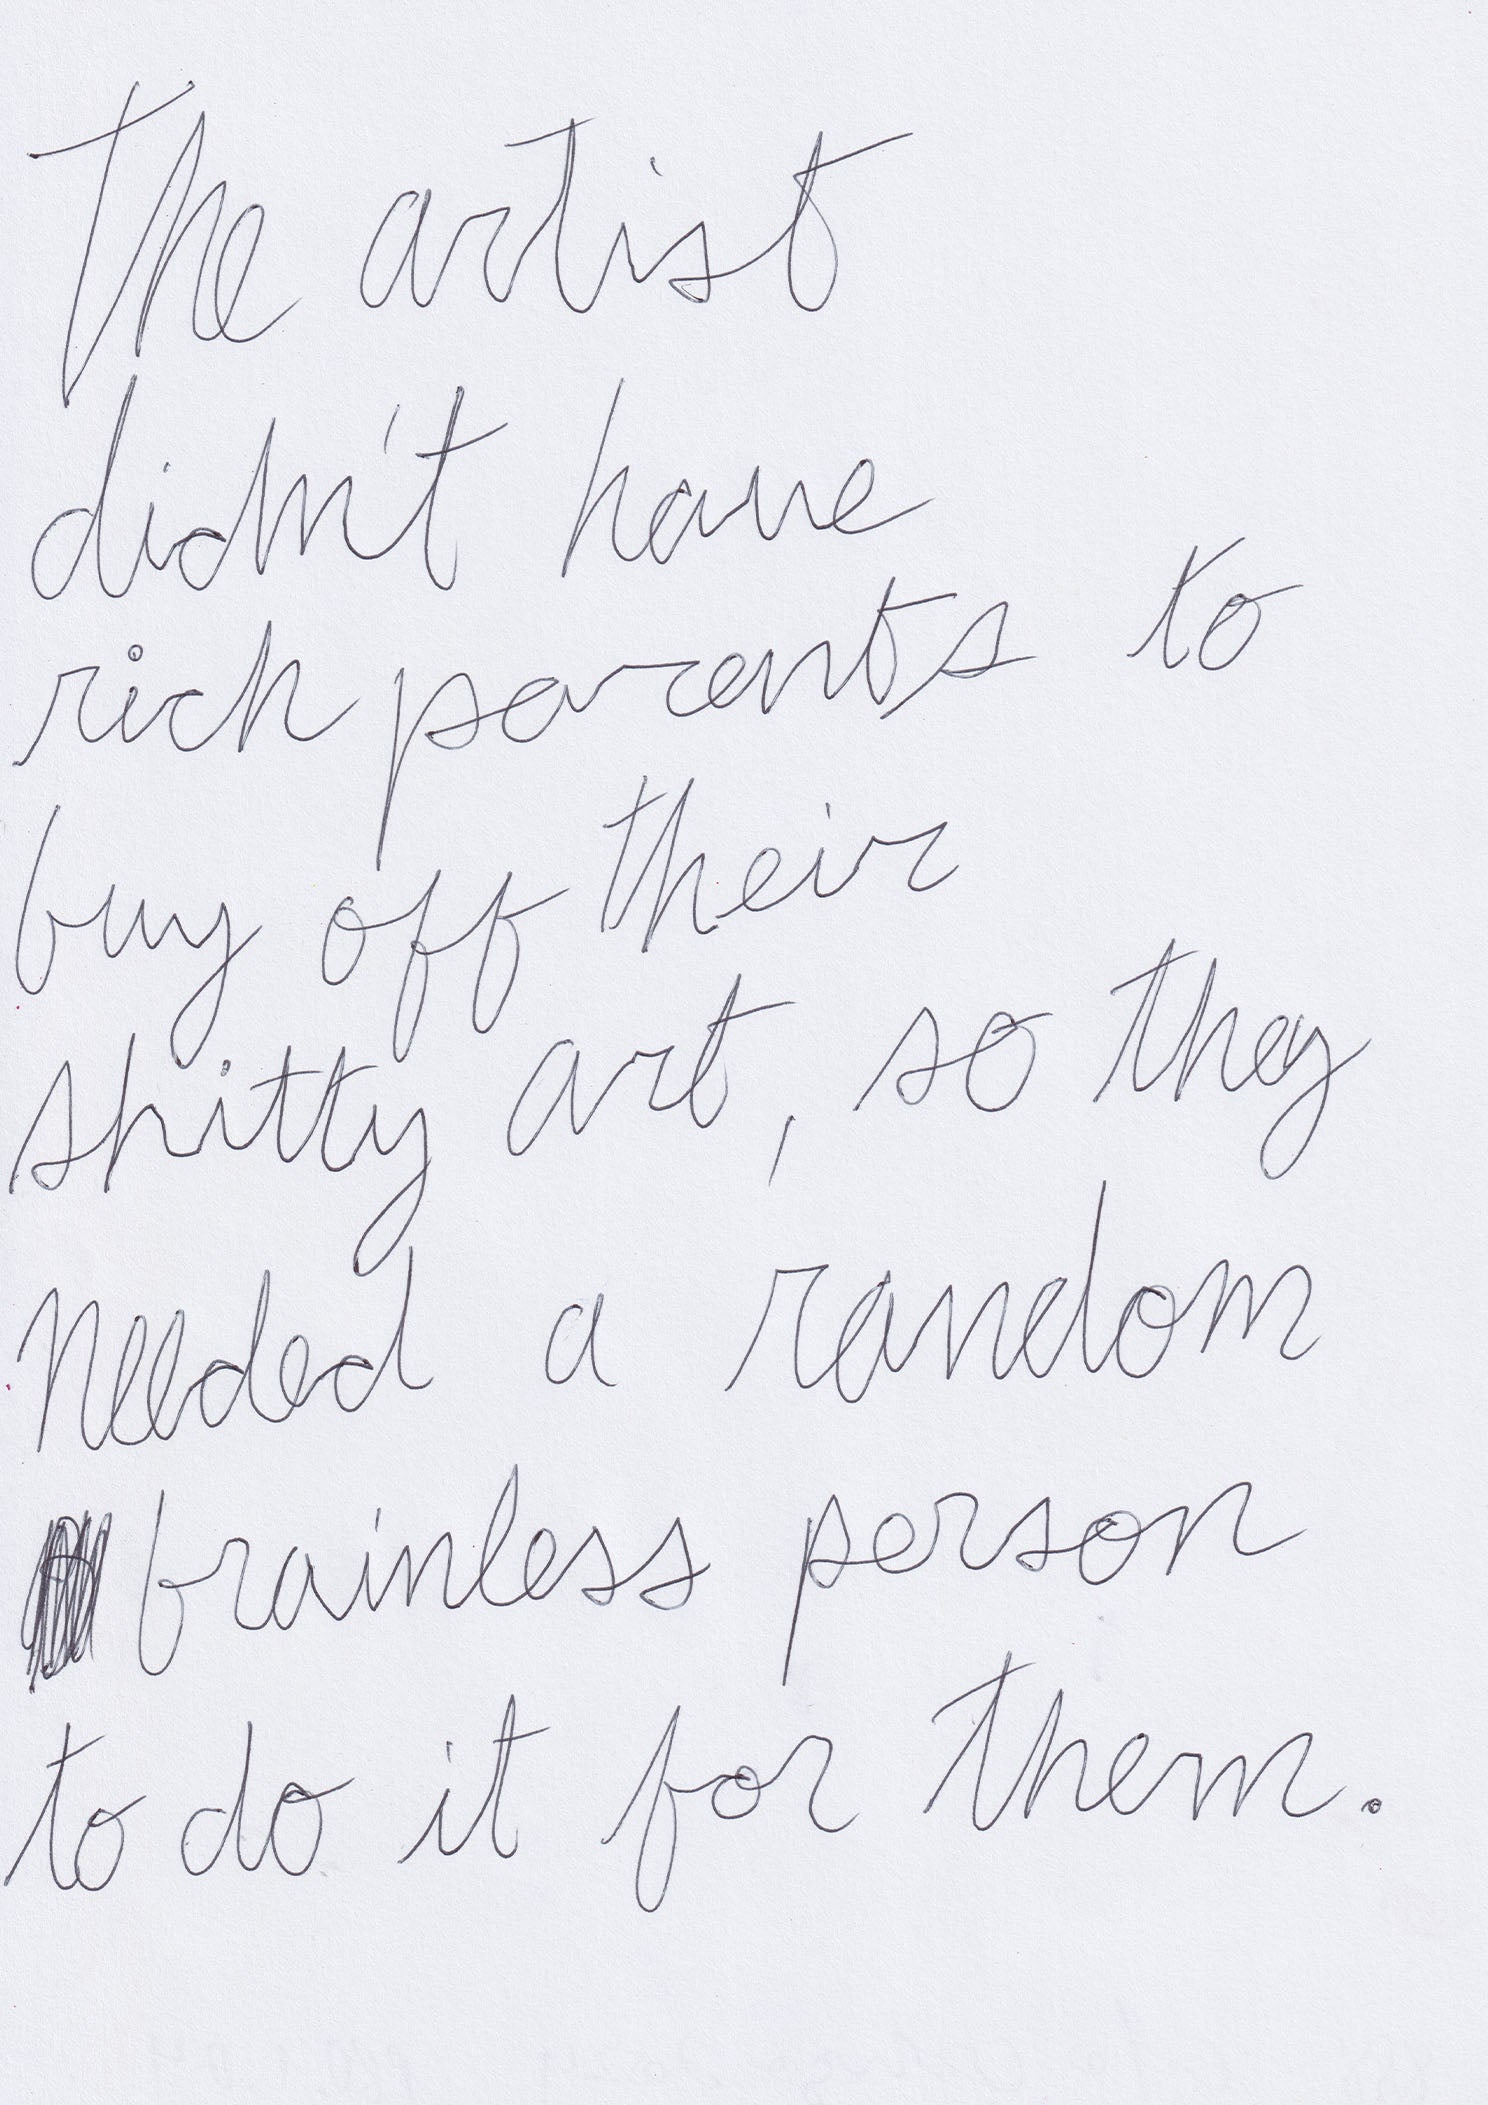 The artist
didn't have
rich parents to
buy off their
shitty art, so they
needed a random
brainless person
to do it for them.